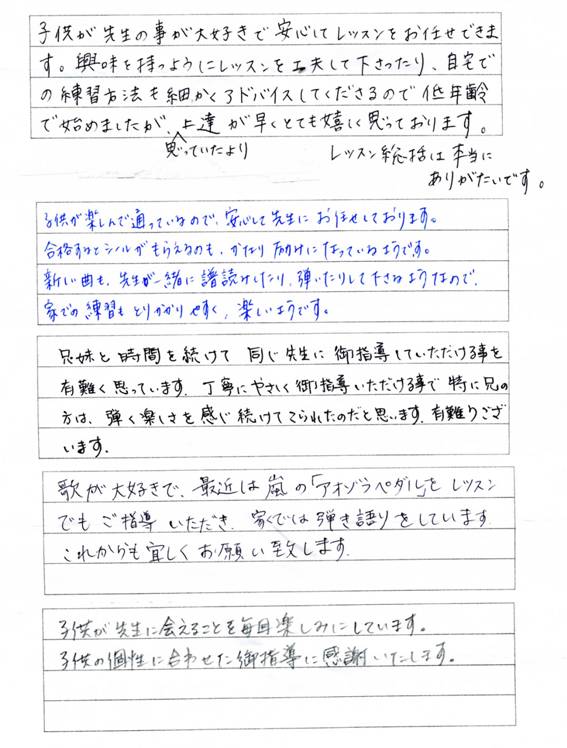 子供が先生の事が大好きで安心してレッスンをお任せできま
す。興味を持つようにレッスンを工夫して下さったり、自宅で
の練習方法も細かくアドバイスしてくださるので低年齢
で始めましたが、上達が早くとても嬉しく思っております。
思っていたより
レッスン総括は本当に
ありがたいです。
子供が楽しんで通っているので、安心して先生にお任せしております。
合格するとシールがもらえるのも、かなり励みになっているようです。
新しい曲も、先生が一緒に譜読みしたり、弾いたりして下さるようなので、
家での練習もとりかかりやすく、楽しいようです。
兄妹と時間を続けて同じ先生に御指導していただける事を
有難く思っています。丁寧にやさしく御指導いただける事で特に兄の
方は、弾く楽しさを感じ続けてこられたのだと思います。有難うござ
います。
歌が大好きで、最近は嵐の「アオゾラペダル」をレッスン
でもご指導いただき、家では弾き語りをしています。
これからも宜しくお願い致します。
子供が先生に会えることを毎回楽しみにしています。
子供の個性に合わせた御指導に感謝いたします。